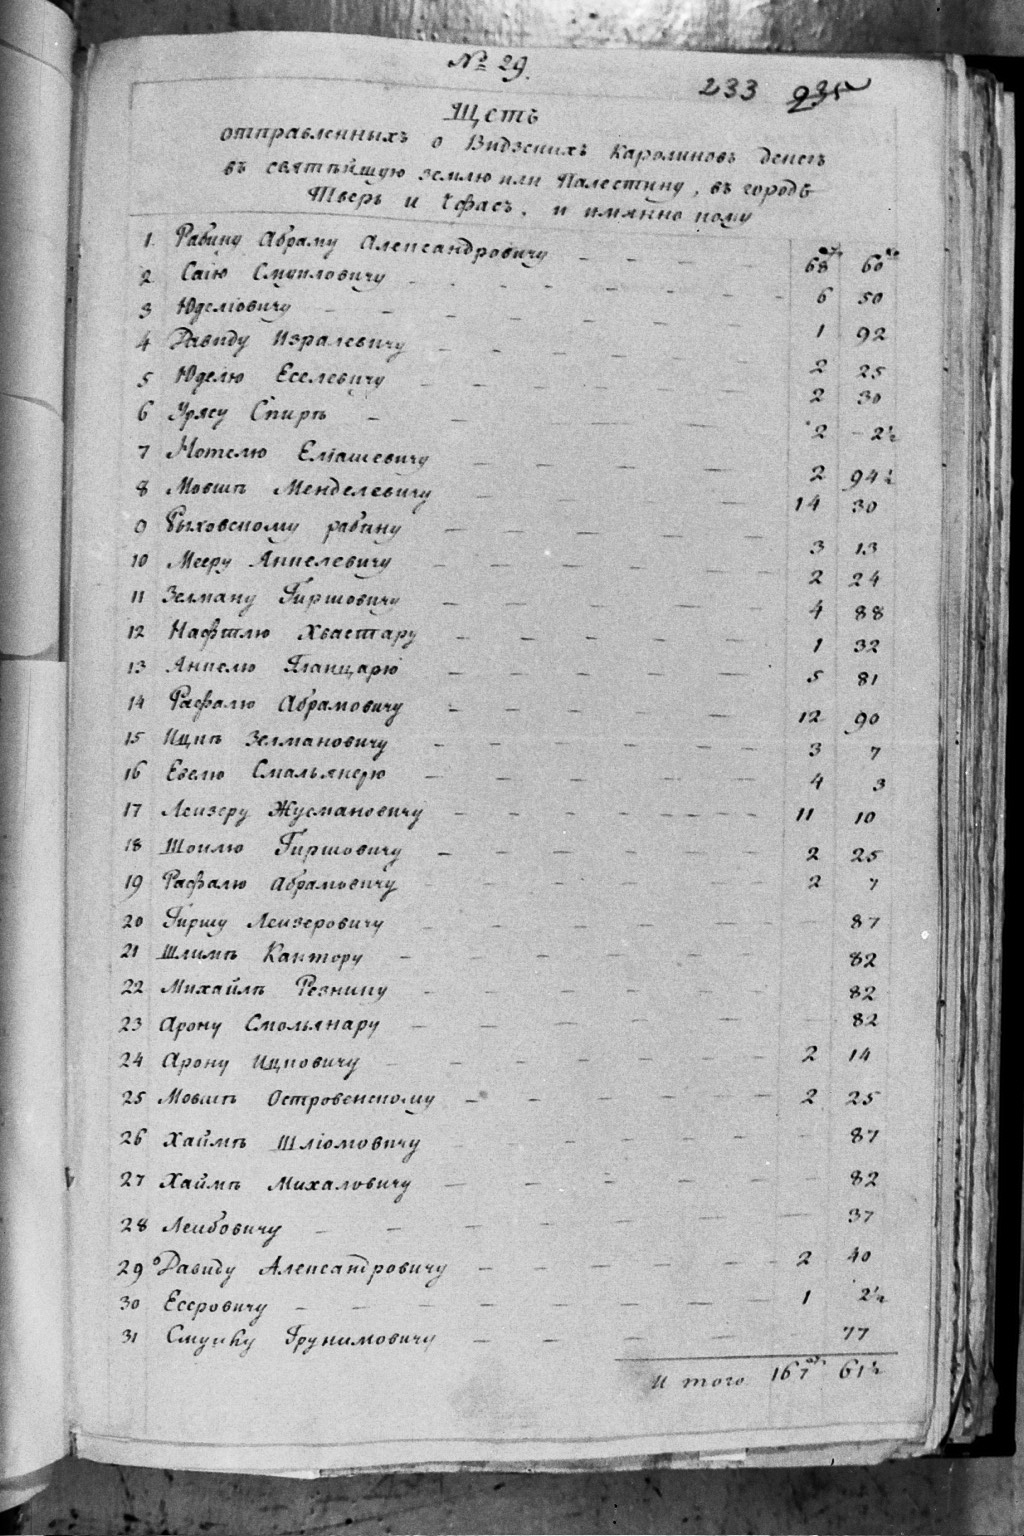 № 29.
233 235
Щетъ
отправленныхъ о Видзскихъ Каролиновъ денегъ
въ святѣйшую землю или Палестину, въ городъ
Тверь и Ефасъ, и имянно кому
1. Рабину Абраму Александровичу — 68 60
2 Саію Смуиловичу — 6 50
3 Юделіовичу — 1 92
4 Давиду Израелевичу — 2 25
5 Юделю Еселевичу — 2 30
6 Спирѣ — 2 – 2½
7 Мотелю Еліашевичу — 2 94½
8 Мовшѣ Менделевичу — 14 30
9 Рыховскому рабину — 3 13
10 Мееру Анкелевичу — 2 24
11 Зелману Гиршовичу — 4 88
12 Нафтлю Хвастару — 1 32
13 Анкелю — 5 81
14 Рафалю Абрамовичу — 12 90
15 Ицкѣ Зелмановичу — 3 7
16 Евелю Смольянерю — 4 3
17 Леизеру Жусмановичу — 11 10
18 Шоилю Гиршовичу — 2 25
19 Рафалю Абрамовичу — 2 7
20 Гиршу Леизеровичу — 87
21 Шлимѣ Кантору — 82
22 Михайлѣ Резнику — 82
23 Арону Смольянару — 82
24 Арону Ицковичу — 2 14
25 Мовшѣ Островенскому — 2 25
26 Хаймѣ Шліомовичу — 87
27 Хаймѣ Михаловичу — 82
28 Леибовичу — 37
29 Давиду Александровичу — 2 40
30 Есеровичу — 1 2½
31 Смуйку Грунимовичу — 77
И того 167 61½